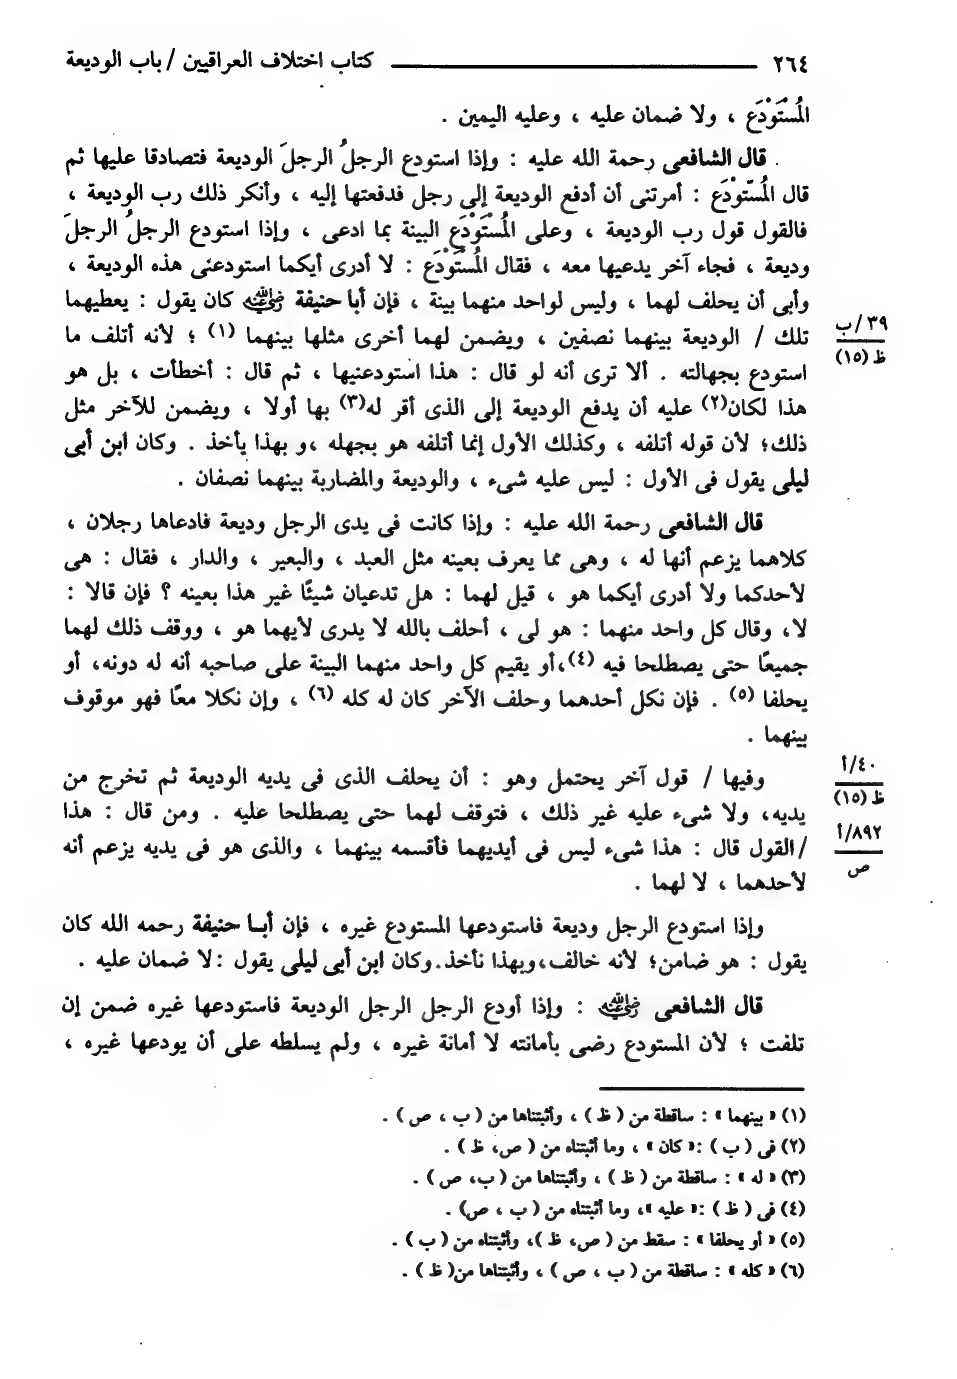 ٢٦٤ كتاب اختلاف العراقيين / باب الوديعة
المُسْتَوْدَع ، ولا ضمان عليه ، وعليه اليمين .
قال الشافعى رحمة الله عليه : وإذا استودع الرجلُ الرجلَ الوديعة فتصادقا عليها ثم
قال المُسْتَوْدَع : أمرتنى أن أدفع الوديعة إلى رجل فدفعتها إليه ، وأنكر ذلك رب الوديعة ،
فالقول قول رب الوديعة ، وعلى المُسْتَوْدَع البينة بما ادعى ، وإذا استودع الرجلُ الرجلَ
وديعة ، فجاء آخر يدعيها معه ، فقال المُسْتَوْدَع : لا أدرى أيكما استودعنى هذه الوديعة ،
وأبى أن يحلف لهما ، وليس لواحد منهما بينة ، فإن أبا حنيفة رضي الله عنه كان يقول : يعطيهما
تلك / الوديعة بينهما نصفين ، ويضمن لهما أخرى مثلها بينهما (١) ؛ لأنه أتلف ما
٣٩/ب
ظ (١٥)
استودع بجهالته . ألا ترى أنه لو قال : هذا استودعنيها ، ثم قال : أخطأت ، بل هو
هذا لكان(٢) عليه أن يدفع الوديعة إلى الذى أقر له(٣) بها أولا ، ويضمن للآخر مثل
ذلك؛ لأن قوله أتلفه ، وكذلك الأول إنما أتلفه هو بجهله ،و بهذا يأخذ . وكان ابن أبى
ليلى يقول فى الأول : ليس عليه شىء ، والوديعة والمضاربة بينهما نصفان .
قال الشافعى رحمة الله عليه : وإذا كانت فى يدى الرجل وديعة فادعاها رجلان ،
كلاهما يزعم أنها له ، وهى مما يعرف بعينه مثل العبد ، والبعير ، والدار ، فقال : هى
لأحدكما ولا أدرى أيكما هو ، قيل لهما : هل تدعيان شيئًا غير هذا بعينه ؟ فإن قالا :
لا، وقال كل واحد منهما : هو لى ، أحلف بالله لا يدرى لأيهما هو ، ووقف ذلك لهما
جميعًا حتى يصطلحا فيه (٤)،أو يقيم كل واحد منهما البينة على صاحبه أنه له دونه، أو
يحلفا (٥) . فإن نكل أحدهما وحلف الآخر كان له كله (٦) ، وإن نكلا معًا فهو موقوف
بينهما .
وفيها / قول آخر يحتمل وهو : أن يحلف الذى فى يديه الوديعة ثم تخرج من
٤٠/أ
ظ (١٥)
يديه، ولا شىء عليه غير ذلك ، فتوقف لهما حتى يصطلحا عليه . ومن قال : هذا
/القول قال : هذا شىء ليس فى أيديهما فأقسمه بينهما ، والذى هو فى يديه يزعم أنه
٨٩٢/أ
ص
لأحدهما ، لا لهما .
وإذا استودع الرجل وديعة فاستودعها المستودع غيره ، فإن أبا حنيفة رحمه الله كان
يقول : هو ضامن؛ لأنه خالف،وبهذا نأخذ.وكان ابن أبى ليلى يقول :لا ضمان عليه .
قال الشافعى رضي الله عنه : وإذا أودع الرجل الرجل الوديعة فاستودعها غيره ضمن إن
تلفت ؛ لأن المستودع رضى بأمانته لا أمانة غيره ، ولم يسلطه على أن يودعها غيره ،
(١) « بينهما » : ساقطة من ( ظ ) ، وأثبتناها من ( ب ، ص ) .
(٢) فى ( ب ) :« كان » ، وما أثبتناه من ( ص، ظ ) .
(٣) « له » : ساقطة من ( ظ ) ، وأثبتناها من ( ب، ص ) .
(٤) فى ( ظ ) :« عليه »، وما أثبتناه من ( ب ، ص) .
(٥) « أو يحلفا » : سقط من ( ص، ظ )، وأثبتناه من ( ب ) .
(٦) « كله » : ساقطة من ( ب ، ص ) ، وأثبتناها من( ظ ) .